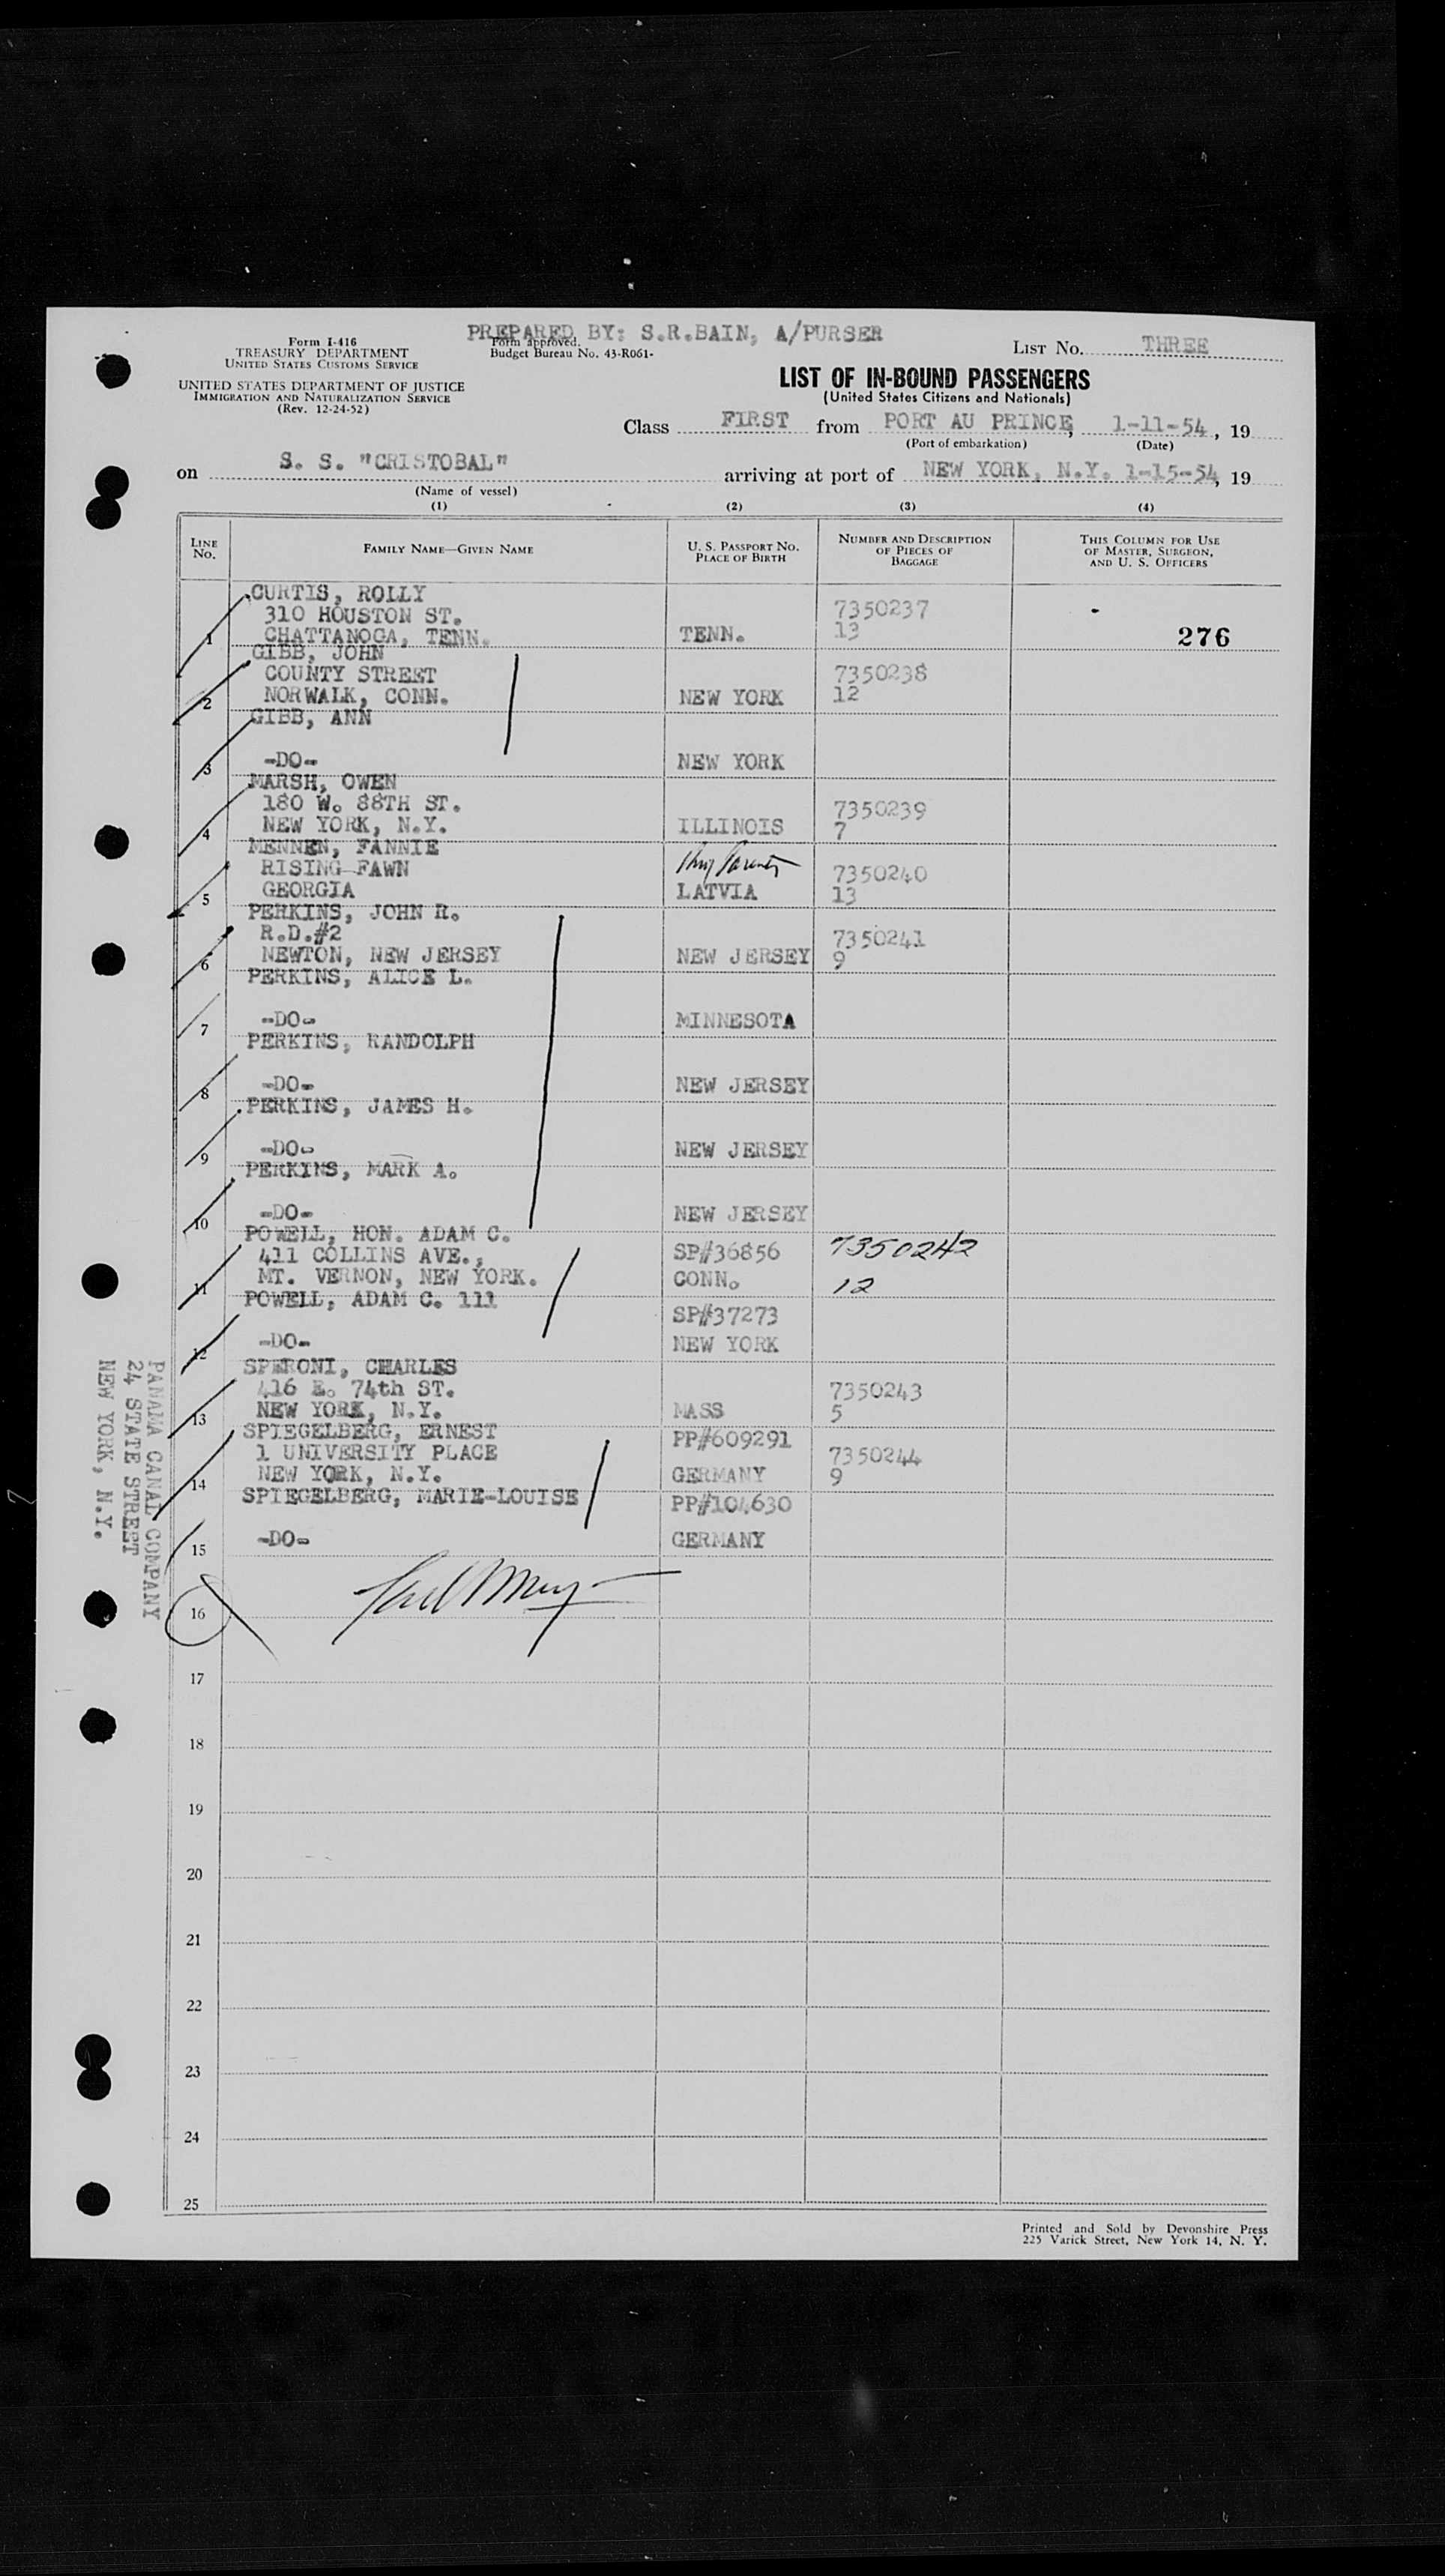 PREPARED BY: S.R.BAIN, A/PURSER
Form I-416
TREASURY DEPARTMENT
UNITED STATES CUSTOMS SERVICE
UNITED STATES DEPARTMENT OF JUSTICE
IMMIGRATION AND NATURALIZATION SERVICE
(Rev. 12-24-52)
Form approved.
Budget Bureau No. 43-R061-
LIST NO. THREE
LIST OF IN-BOUND PASSENGERS
(United States Citizens and Nationals)
Class FIRST from PORT AU PRINCE, 1-11-54, 19
(Port of embarkation) (Date)
on S. S. "CRISTOBAL" arriving at port of NEW YORK, N.Y. 1-15-54, 19
(Name of vessel)
(1) (2) (3) (4)
LINE NO. FAMILY NAME—GIVEN NAME U. S. PASSPORT NO. PLACE OF BIRTH NUMBER AND DESCRIPTION OF PIECES OF BAGGAGE THIS COLUMN FOR USE OF MASTER, SURGEON, AND U. S. OFFICERS
CURTIS, ROLLY
310 HOUSTON ST. 7350237
1 CHATTANOGA, TENN. TENN. 13 276
GIBB, JOHN
COUNTY STREET 7350238
2 NORWALK, CONN. NEW YORK 12
GIBB, ANN
3 -DO- NEW YORK
MARSH, OWEN
180 W. 88TH ST. 7350239
4 NEW YORK, N.Y. ILLINOIS 7
MENNEN, FANNIE
RISING FAWN 7350240
5 GEORGIA LATVIA 13
PERKINS, JOHN R.
R.D.#2 7350241
6 NEWTON, NEW JERSEY NEW JERSEY 9
PERKINS, ALICE L.
7 -DO- MINNESOTA
PERKINS, RANDOLPH
8 -DO- NEW JERSEY
PERKINS, JAMES H.
9 -DO- NEW JERSEY
PERKINS, MARK A.
10 -DO- NEW JERSEY
POWELL, HON. ADAM C.
411 COLLINS AVE., SP#36856 7350242
11 MT. VERNON, NEW YORK. CONN. 12
POWELL, ADAM C. 111
SP#37273
12 -DO- NEW YORK
SPERONI, CHARLES
416 E. 74th ST. 7350243
13 NEW YORK, N.Y. MASS 5
SPIEGELBERG, ERNEST PP#609291
1 UNIVERSITY PLACE 7350244
14 NEW YORK, N.Y. GERMANY 9
SPIEGELBERG, MARIE-LOUISE PP#104630
15 -DO- GERMANY
16
17
18
19
20
21
22
23
24
25
PANAMA CANAL COMPANY
24 STATE STREET
NEW YORK, N.Y.
Printed and Sold by Devonshire Press
225 Varick Street, New York 14, N. Y.